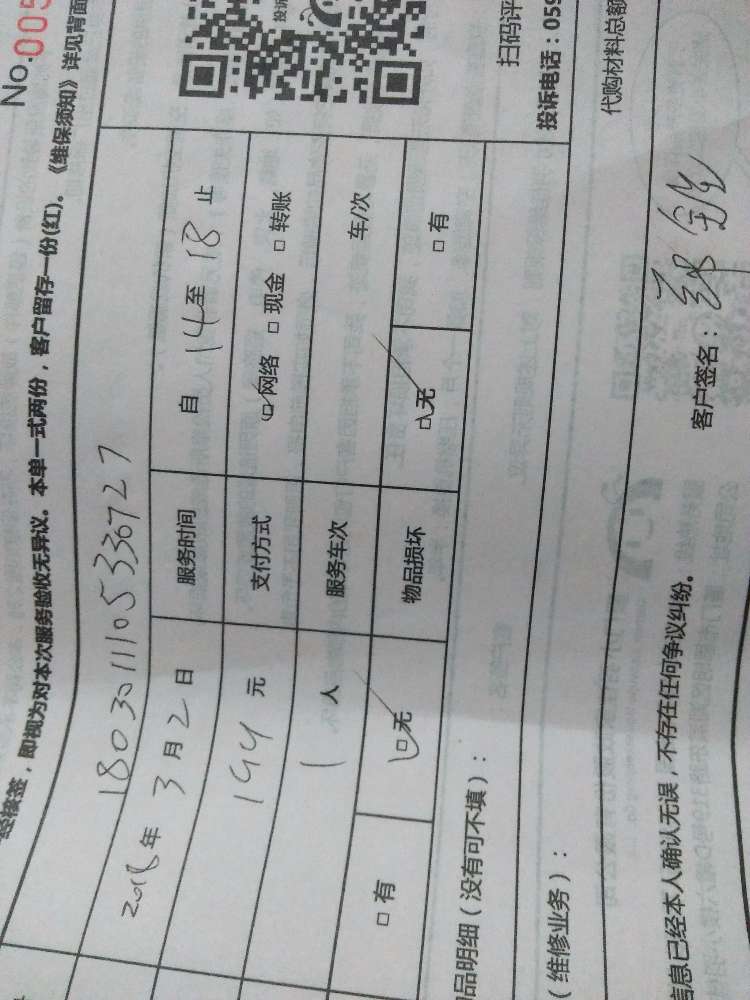 No.005
经核签，即视为对本次服务验收无异议。本单一式两份，客户留存一份(红)。《维保须知》详见背面
投诉
1803011105336727
2018年 3月2日 服务时间 自 14 至 18 止
194 元 支付方式 网络 现金 转账
1 人 服务车次 车/次
有 无 物品损坏 无 有
品明细（没有可不填）：
扫码评
（维修业务）：
投诉电话：059
代购材料总额
信息已经本人确认无误，不存在任何争议纠纷。
客户签名：